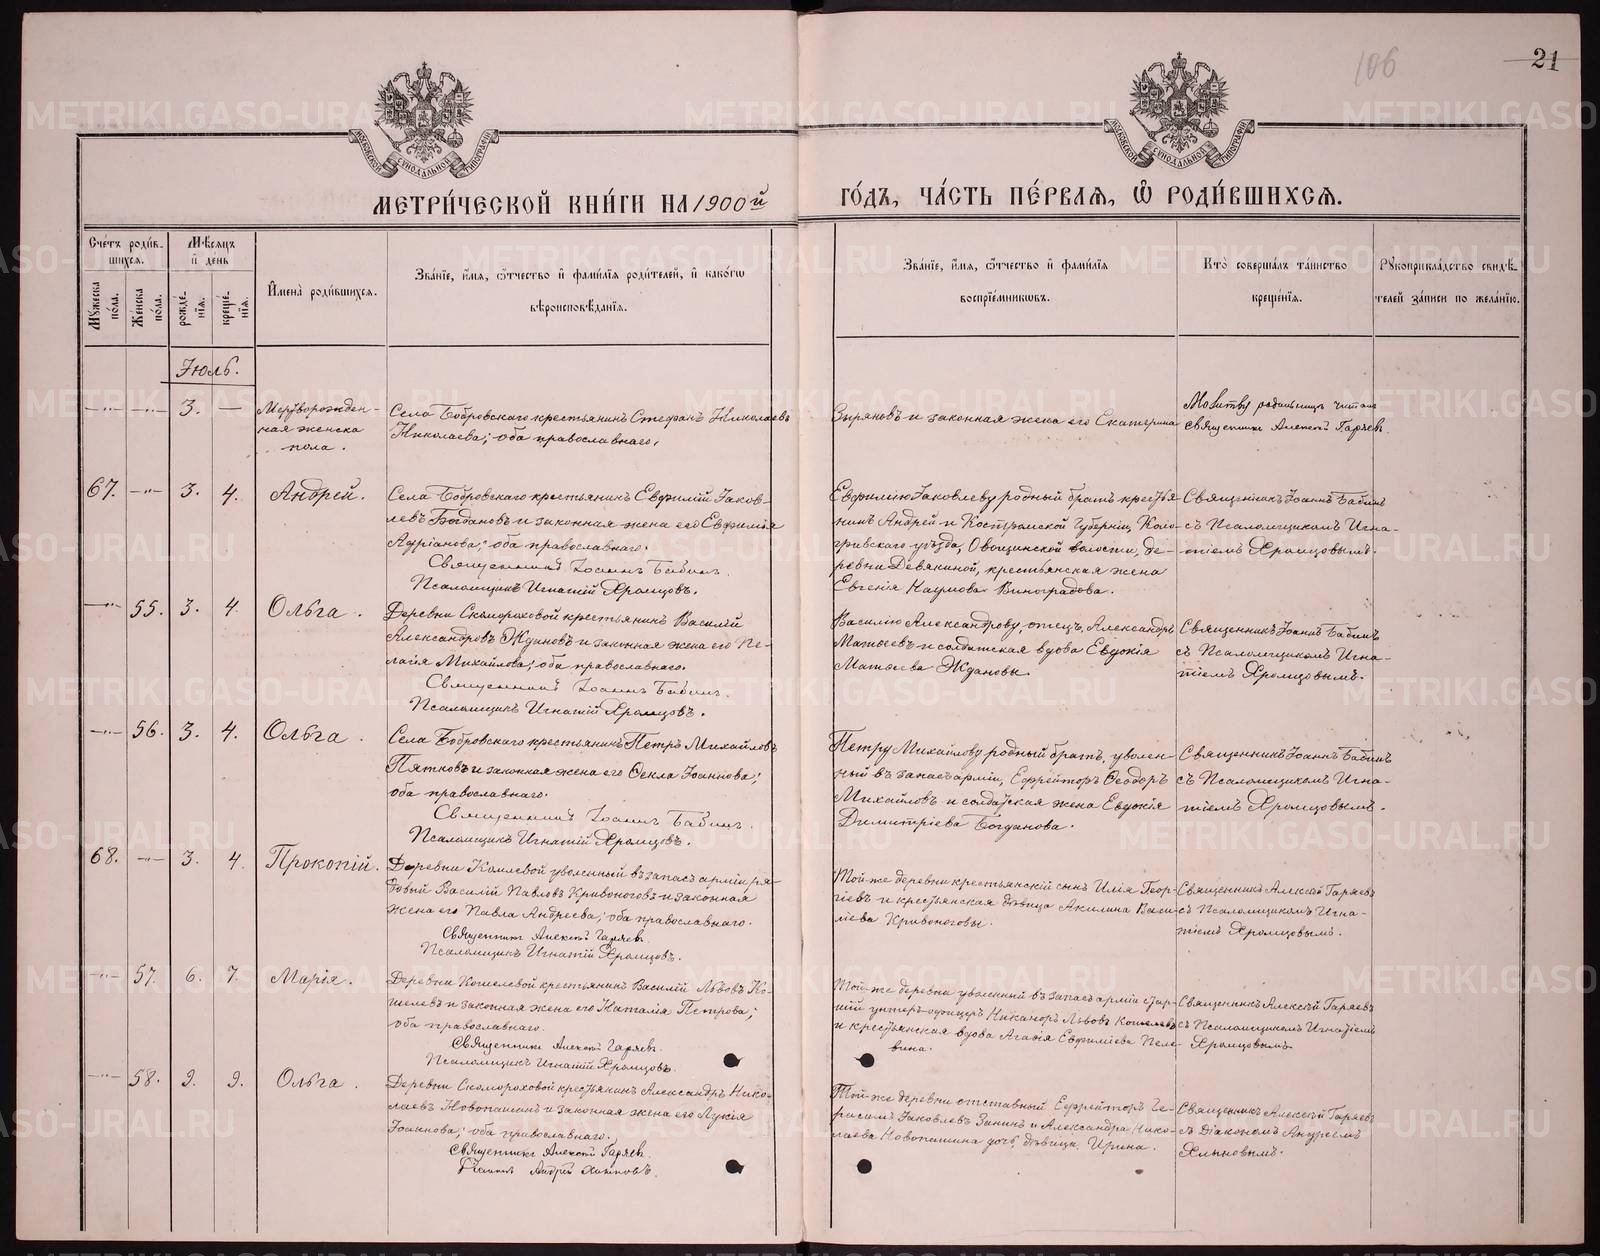 106
21
МЕТРИ́ЧЕСКОЙ КНИ́ГИ НА 1900й ГО́ДЪ, ЧА́СТЬ ПЕ́РВАЯ, Ѡ РОДИ́ВШИХСЯ.
Сче́тъ роди́в-
шихся.
Мѣ́сяцъ
и де́нь
Му́жеска
по́ла.
Же́нска
по́ла.
рожде́-
нїя.
креще́-
нїя.
И҆мена̀ роди́вшихся.
Зва́нїе, и҆́мя, ѻ҆́тчество и҆ фами́лїя роди́телей, и҆ како́гѡ
вѣроисповѣ́данїя.
Зва́нїе, и҆́мя, ѻ҆́тчество и҆ фами́лїя
воспрїе́мниковъ.
Кто̀ соверша́лъ та́инство
креще́нїя.
Рꙋкоприкла́дство свидѣ́-
телей за́писи по жела́нїю.
Іюль.
—"— —"— 3. —
Мертворожден-
ная женска
пола.
Села Бобровскаго крестьянинъ Стефанъ Николаевъ
Зыряновъ и законная жена его Екатерина
Николаева; оба православнаго.
Молитву родильницѣ читалъ
священникъ Алексѣй Гаряевъ.
67. —"— 3. 4. Андрей.
Села Бобровскаго крестьянинъ Евфимій Іаков-
левъ Богдановъ и законная жена его Евфимія
Адріанова; оба православнаго.
Священникъ Іоаннъ Бабинъ.
Псаломщикъ Игнатій Хромцовъ.
Евфимію Іаковлеву родный братъ крестья-
нинъ Андрей и Костромской губерніи, Коло-
гривскаго уѣзда, Овощинской волости, де-
ревни Девякиной, крестьянская жена
Евгенія Наумова Виноградова.
Священникъ Іоаннъ Бабинъ
съ Псаломщикомъ Игна-
тіемъ Хромцовымъ.
—"— 55. 3. 4. Ольга.
Деревни Скомороховой крестьянинъ Василій
Александровъ Ждановъ и законная жена его Пе-
лагія Михайлова; оба православнаго.
Священникъ Іоаннъ Бабинъ.
Псаломщикъ Игнатій Хромцовъ.
Василію Александрову, отецъ, Александръ
Матѳеевъ и солдатская вдова Евдокія
Матѳеева Ждановы.
Священникъ Іоаннъ Бабинъ
съ Псаломщикомъ Игна-
тіемъ Хромцовымъ.
—"— 56. 3. 4. Ольга.
Села Бобровскаго крестьянинъ Петръ Михайловъ
Пятковъ и законная жена его Ѳекла Іоаннова;
оба православнаго.
Священникъ Іоаннъ Бабинъ.
Псаломщикъ Игнатій Хромцовъ.
Петру Михайлову родный братъ, уволен-
ный въ запасъ арміи, Ефрейторъ Ѳеодоръ
Михайловъ и солдатская жена Евдокія
Димитріева Богданова.
Священникъ Іоаннъ Бабинъ
съ Псаломщикомъ Игна-
тіемъ Хромцовымъ.
68. —"— 3. 4. Прокопій.
Деревни Кошелевой уволенный въ запасъ арміи ря-
довый Василій Павловъ Кривоноговъ и законная
жена его Павла Андреева; оба православнаго.
Священникъ Алексѣй Гаряевъ.
Псаломщикъ Игнатій Хромцовъ.
Той-же деревни крестьянскій сынъ Илія Геор-
гіевъ и крестьянская дѣвица Акилина Васи-
ліева Кривоноговы.
Священникъ Алексѣй Гаряевъ
съ Псаломщикомъ Игна-
тіемъ Хромцовымъ.
—"— 57. 6. 7. Марія.
Деревни Кошелевой крестьянинъ Василій Львовъ Ко-
шелевъ и законная жена его Наталія Петрова;
оба православнаго.
Священникъ Алексѣй Гаряевъ.
Псаломщикъ Игнатій Хромцовъ.
Той-же деревни уволенный въ запасъ арміи стар-
шій унтеръ-офицеръ Никаноръ Львовъ Кошелевъ
и крестьянская вдова Агафія Евфиміева Пеле-
вина.
Священникъ Алексѣй Гаряевъ
съ Псаломщикомъ Игнатіемъ
Хромцовымъ.
—"— 58. 9. 9. Ольга.
Деревни Скомороховой крестьянинъ Александръ Нико-
лаевъ Новопашинъ и законная жена его Лукія
Іоаннова; оба православнаго.
Священникъ Алексѣй Гаряевъ.
Діаконъ Андрей Хлыновъ.
Той-же деревни отставный Ефрейторъ Ге-
расимъ Іаковлевъ Занинъ и Александра Нико-
лаева Новопашина дочь, дѣвица Ирина.
Священникъ Алексѣй Гаряевъ
съ Діакономъ Андреемъ
Хлыновымъ.